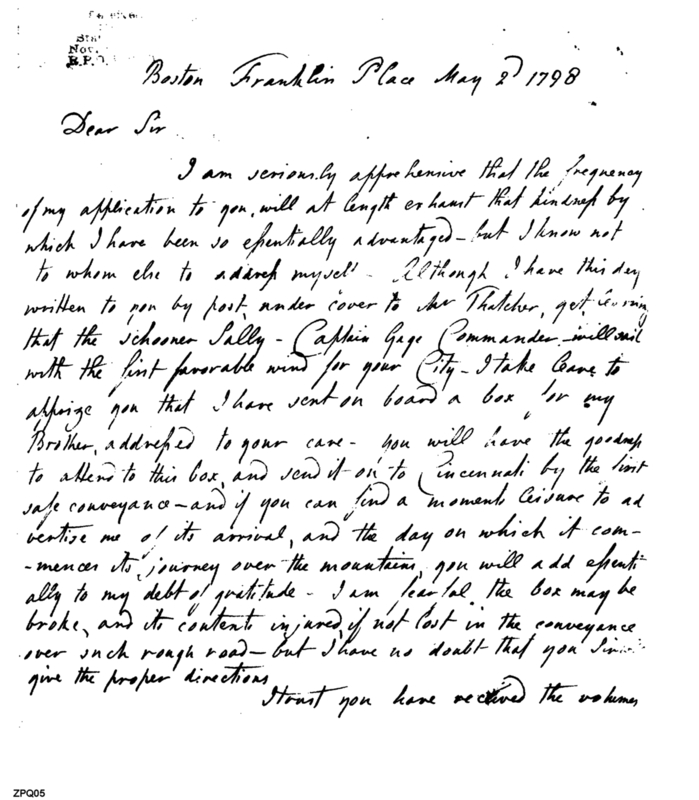 Nov.
B.P.O.
Boston Franklin Place May 2d 1798
Dear Sir
I am seriously apprehensive that the frequency
of my application to you, will at length exhaust that kindness by
which I have been so essentially advantaged – but I know not
to whom else to address myself – Although I have this day
written to you by post, under cover to Mr Thatcher, yet,
that the schooner Sally – Captain Gage Commander – will sail
with the first favorable wind for your City – I take leave to
apprize you that I have sent on board a box for my
Brother, addressed to your care – you will have the goodness
to attend to this box, and send it on to Cincennati by the first
safe conveyance – and if you can find a moments leisure to ad
vertise me of its arrival, and the day on which it com–
–mences its journey over the mountains, you will add essenti
ally to my debt of gratitude – I am fearful the box may be
broke, and its contents injured, if not lost in the conveyance
over such rough road – but I have no doubt that you Sir
give the proper directions
I trust you have received the volumes
ZPQ05